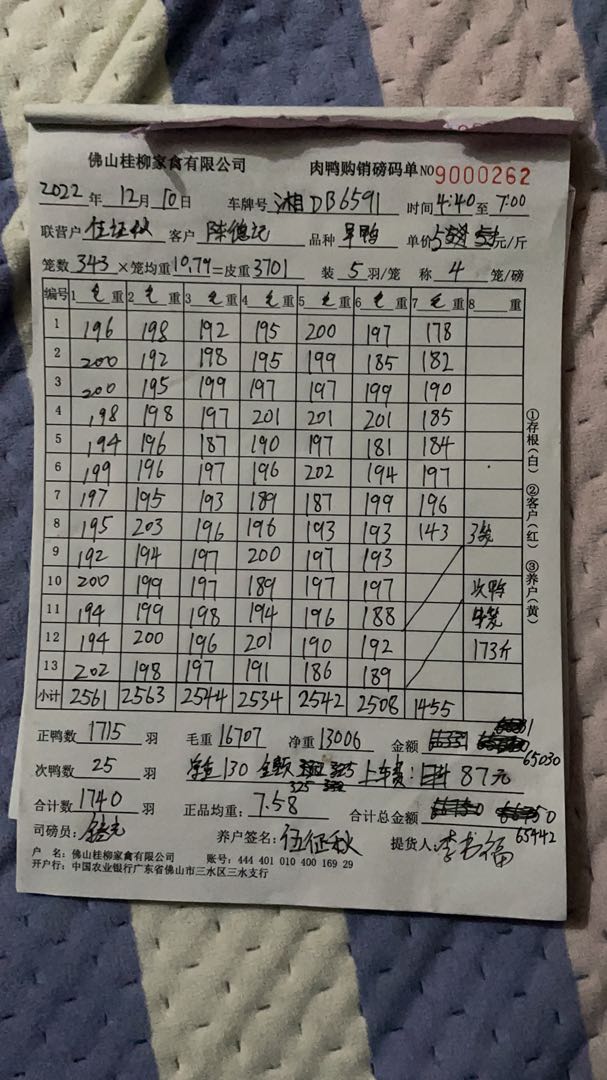 佛山桂柳家禽有限公司 肉鸭购销磅码单 NO 9000262
2022年 12月 10日 车牌号 湘DB6591 时间 4:40 至 7:00
联营户 伍征秋 客户 陈德记 品种 旱鸭 单价 元/斤
笼数 343 ×笼均重 10.79 =皮重 3701 装 5 羽/笼 称 4 笼/磅
编号 1 毛 重 2 毛 重 3 毛 重 4 毛 重 5 毛 重 6 毛 重 7 毛 重 8 重
1 196 198 192 195 200 197 178
2 200 192 198 195 199 185 182
3 200 195 199 197 197 199 190
4 198 198 197 201 201 201 185
5 194 196 187 190 197 181 184
6 199 196 197 196 202 194 197
7 197 195 193 189 187 199 196
8 195 203 196 196 193 193 143 3笼
9 192 194 197 200 197 193
10 200 199 197 189 197 197 次鸭
11 194 199 198 194 196 188 5笼
12 194 200 196 201 190 192 173斤
13 202 198 197 191 186 189
小计 2561 2563 2544 2534 2542 2508 1455
①存根(白) ②客户(红) ③养户(黄)
正鸭数 1715 羽 毛重 16707 净重 13006 金额 65030
次鸭数 25 羽 130 金额 325 上车费: 87元
325
合计数 1740 羽 正品均重: 7.58 合计总金额 65442
司磅员: 养户签名: 伍征秋 提货人: 李书福
户 名: 佛山桂柳家禽有限公司 账号: 444 401 010 400 169 29
开户行: 中国农业银行广东省佛山市三水区三水支行